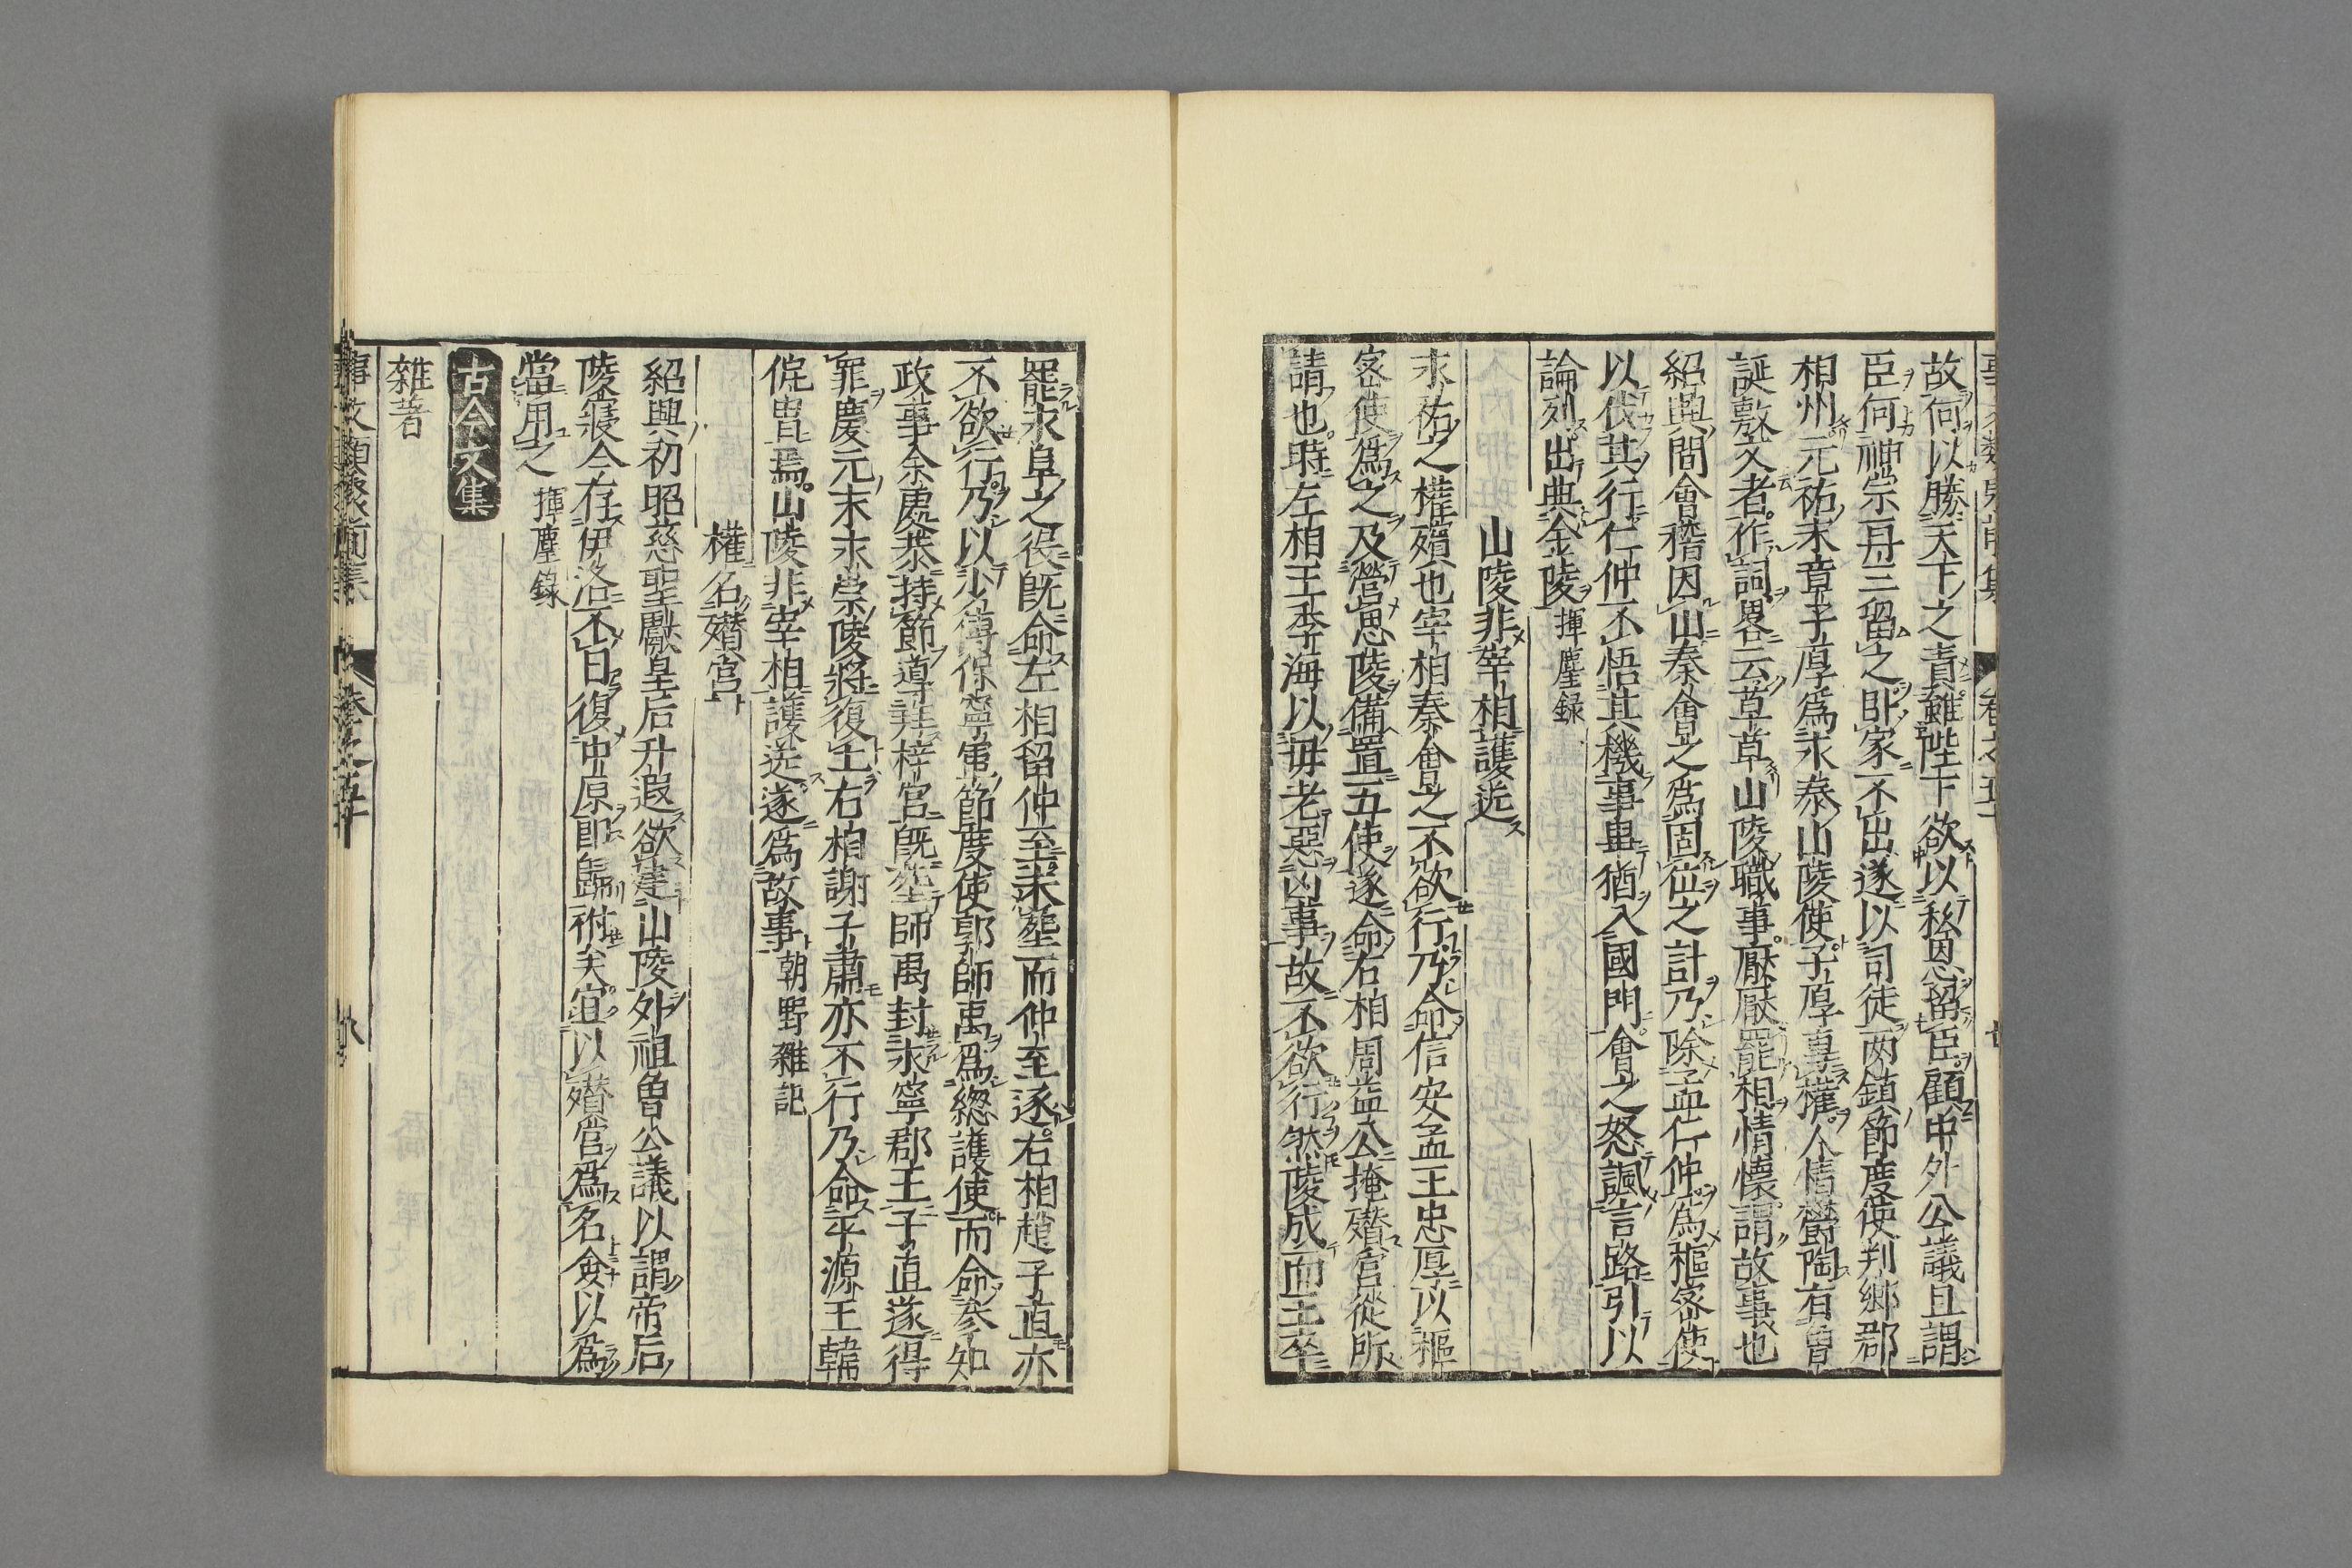 故何以勝天下之責雖陛下欲以私恩留臣顧中外公議且謂
臣何神宗再三留之卧家不出遂以司徒兩鎮節度使判鄉郡
相州元祐末章子厚爲永泰山陵使子厚專權人情欝陶有曾
誕敷文者作詞畧云草草山陵職事厭厭罷相情懷謂故事也
紹興間會稽因山秦會之爲固位之計乃除孟仁仲爲樞密使
以伐其行仁仲不悟其機事畢猶入國門會之怒諷言路引以
論列出典金陵 揮塵録
山陵非宰相護送
永祐之權殯也宰相秦會之不欲行乃命信安孟王忠厚以樞
密使爲之及營思陵備置五使遂命右相周益公掩殯宮從所
請也時左相王季海以毋老惡凶事故不欲行然陵成而王卒
罷永阜之役既命左相留仲至未塟而仲至逐右相趙子直亦
不欲行乃以少傅保寧軍節度使郭師禹爲總護使而命參知
政事余處恭持節導拜梓宮既塟師禹封永寧郡王子直遂得
罪慶元末永崇陵將復土右相謝子肅亦不行乃命平源王韓
侂胄焉山陵非宰相護送遂爲故事 朝野雜記
權名殯宮
紹興初昭慈聖獻皇后升遐欲建山陵外祖曾公議以謂帝后
陵寢今存伊洛不日復中原即歸祔矣宜以殯宮爲名僉以爲
當用之 揮塵録
古今文集
雜著